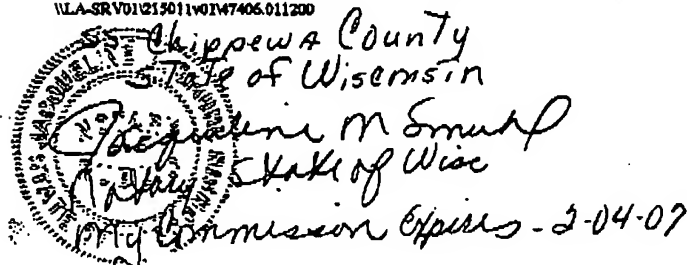 \\LA-SRV01\215011v01\47406.011200
SS Chippewa County
State of Wisconsin
Jacqueline M
Notary State of Wisc
My Commission Expires - 2-04-07